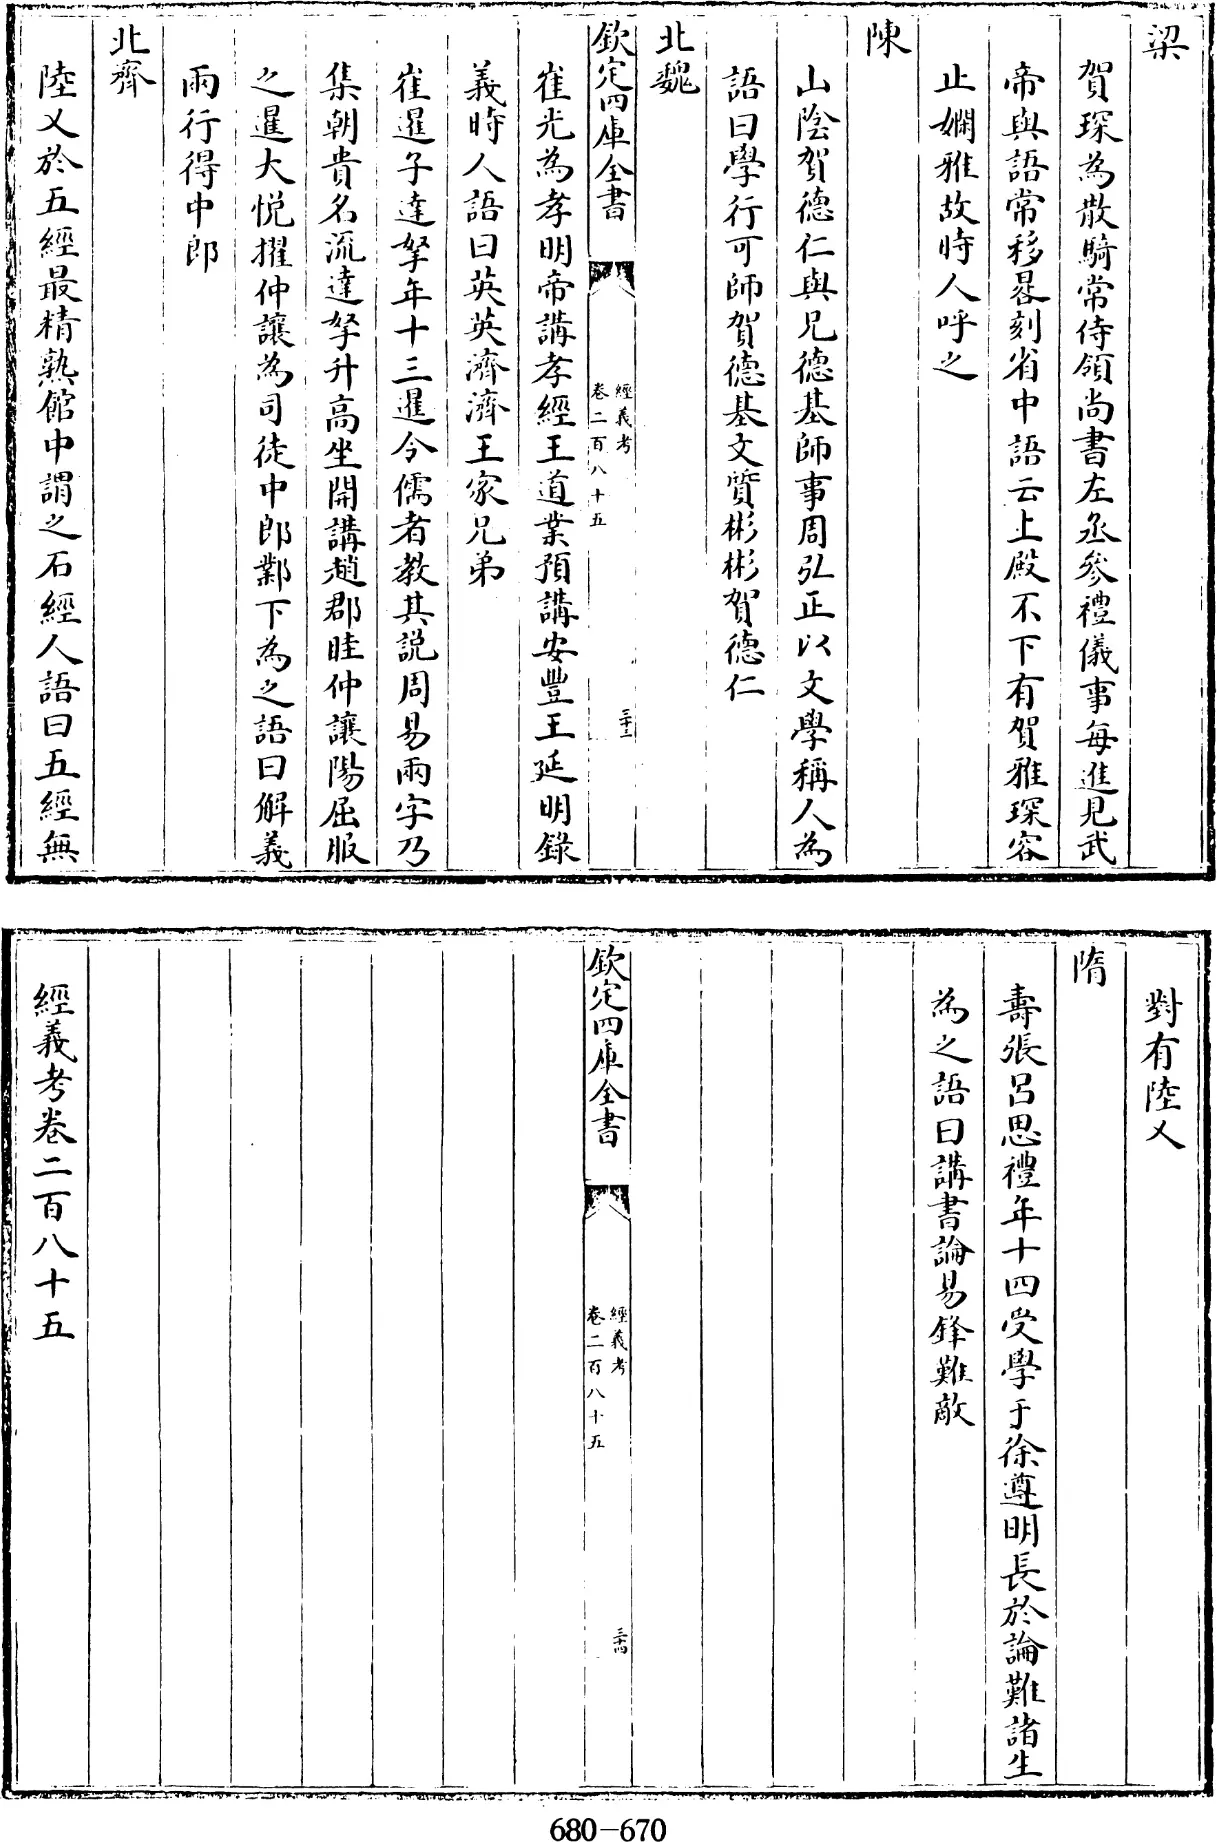 梁
賀琛為散騎常侍領尚書左丞參禮儀事每進見武
帝與語常移晷刻省中語云上殿不下有賀雅琛容
止嫻雅故時人呼之
陳
山陰賀德仁與兄德基師事周弘正以文學稱人為
語曰學行可師賀德基文質彬彬賀德仁
北魏
欽定四庫全書
經義考
卷二百八十五
三十三
崔光為孝明帝講孝經王道業預講安豐王延明錄
義時人語曰英英濟濟王家兄弟
崔暹子達拏年十三暹令儒者教其説周易兩字乃
集朝貴名流達拏升高坐開講趙郡眭仲讓陽屈服
之暹大悅擢仲讓為司徒中郎鄴下為之語曰解義
兩行得中郎
北齊
陸乂於五經最精熟館中謂之石經人語曰五經無
對有陸乂
隋
壽張呂思禮年十四受學于徐遵明長於論難諸生
為之語曰講書論易鋒難敵
欽定四庫全書
經義考
卷二百八十五
三十四
經義考卷二百八十五
680-670